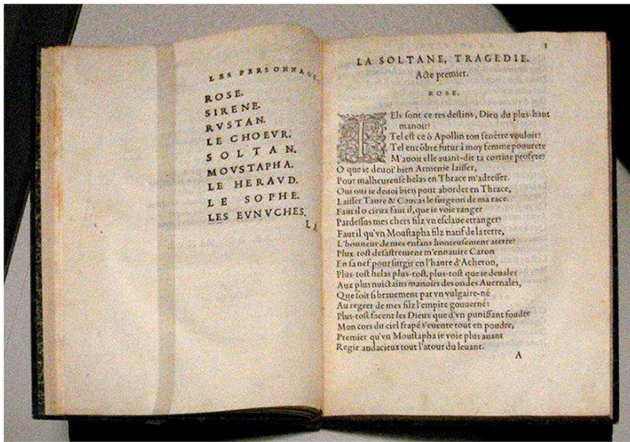 LES PERSONNAGES.
ROSE.
SIRENE.
RVSTAN.
LE CHOEVR.
SOLTAN.
MOVSTAPHA.
LE HERAVD.
LE SOPHE.
LES EVNVCHES.
LA
1
LA SOLTANE, TRAGEDIE.
Acte premier.
ROSE.
TEls sont ce tes destins, Dieu du plus haut
manoir?
Tel est ce ô Apollin ton senêtre vouloir?
Tel encôbre futur à moy femme poourete
M'auoit elle auant-dit ta cortine profete?
O que ie deuoi bien Armenie laisser,
Pour malheureuse helas en Thrace m'adresser.
Oui oui ie deuoi bien pour aborder en Thrace,
Laisser Taure & Caucas le surgeon de ma race.
Faut il o cieux faut il, que ie voie ranger
Pardessus mes chers filz vn esclaue etranger?
Faut il qu'vn Moustapha filz natif de la terre,
L'honneur de mes enfans honteusement aterre?
Plus-tost desastrement m'ennauire Caron
En sa nef pour surgir en l'haure d'Acheron,
Plus-tost helas plus-tost, plus-tost que ie deuales
Aux plus nuictains manoirs des ondes Auernales,
Que soit si brauement par vn vulgaire-né
Au regret de mes filz l'empire gouuerné:
Plus-tost facent les Dieux que d'vn punissant foudre
Mon cors du ciel frapé s'euente tout en poudre,
Premier qu'vn Moustapha ie voie plus auant
Regir audacieux tout l'atour du leuant.
A